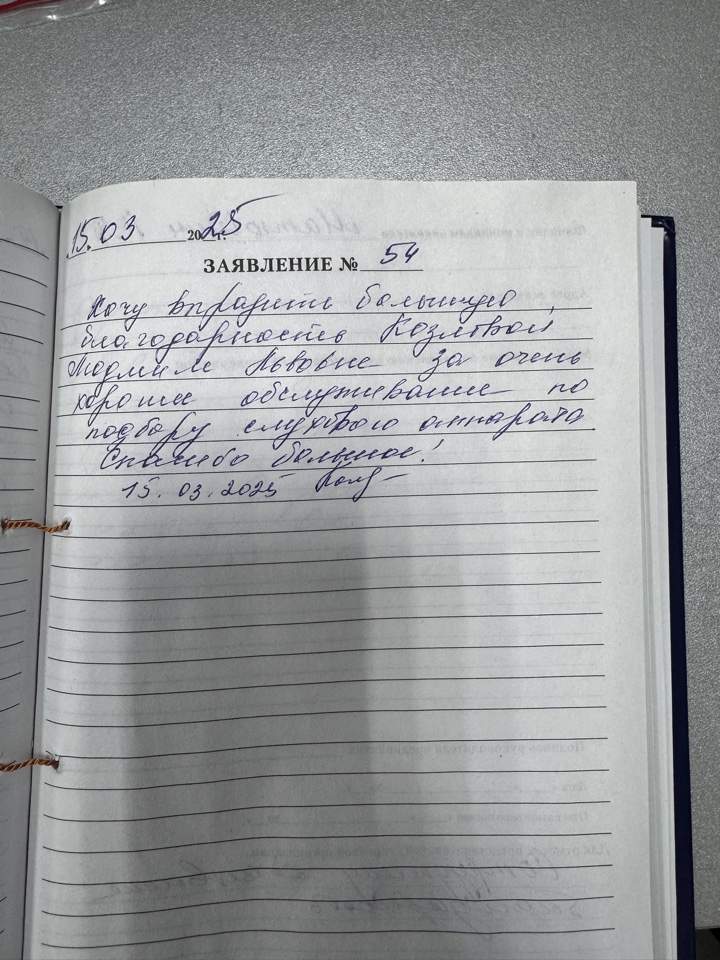 15.03 2025г.
ЗАЯВЛЕНИЕ № 54
Хочу выразить большую
благодарность Козловой
Людмиле Львовне за очень
хорошее обслуживание по
подбору слухового аппарата
Спасибо большое!
15.03.2025